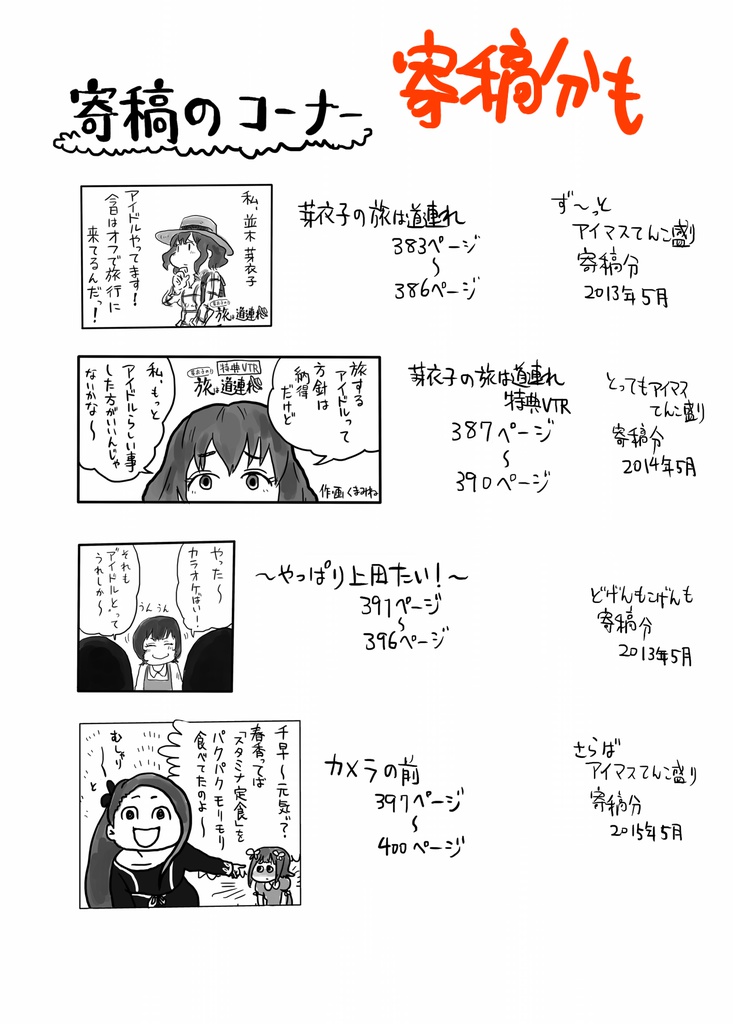 寄稿分も
寄稿のコーナー
私、並木芽衣子
アイドルやってます!
今日はオフで旅行に
来てるんだっ!
芽衣子の
旅は道連れ
芽衣子の旅は道連れ
383ページ
～
386ページ
ず～っと
アイマスてんこ盛り
寄稿分
2013年5月
旅する
アイドルって
方針は
納得
だけど
特典VTR
芽衣子の
旅は道連れ
私、もっと
アイドルらしい事
した方がいいんじゃ
ないかな～
作画くまみね
芽衣子の旅は道連れ
特典VTR
387ページ
～
390ページ
とってもアイマス
てんこ盛り
寄稿分
2014年5月
やった～
カラオケばい!
それも
アイドルとって
うれしか～
うんうん
～やっぱり上田たい!～
391ページ
～
396ページ
どげんもこげんも
寄稿分
2013年5月
千早～元気?
春香ってば
「スタミナ定食」を
パクパクモリモリ
食べてたのよ～
むしゃり
と
カメラの前
397ページ
～
400ページ
さらば
アイマスてんこ盛り
寄稿分
2015年5月